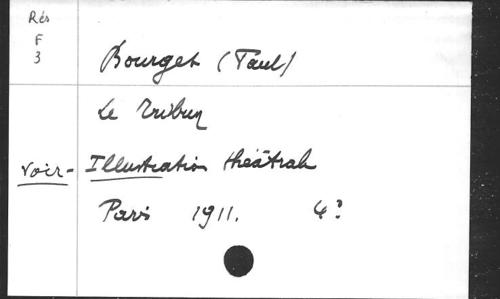 Rés
F
3
Bourget (Paul)
Le Tribun
Voir - Illustration théâtrale
Paris 1911. 4?